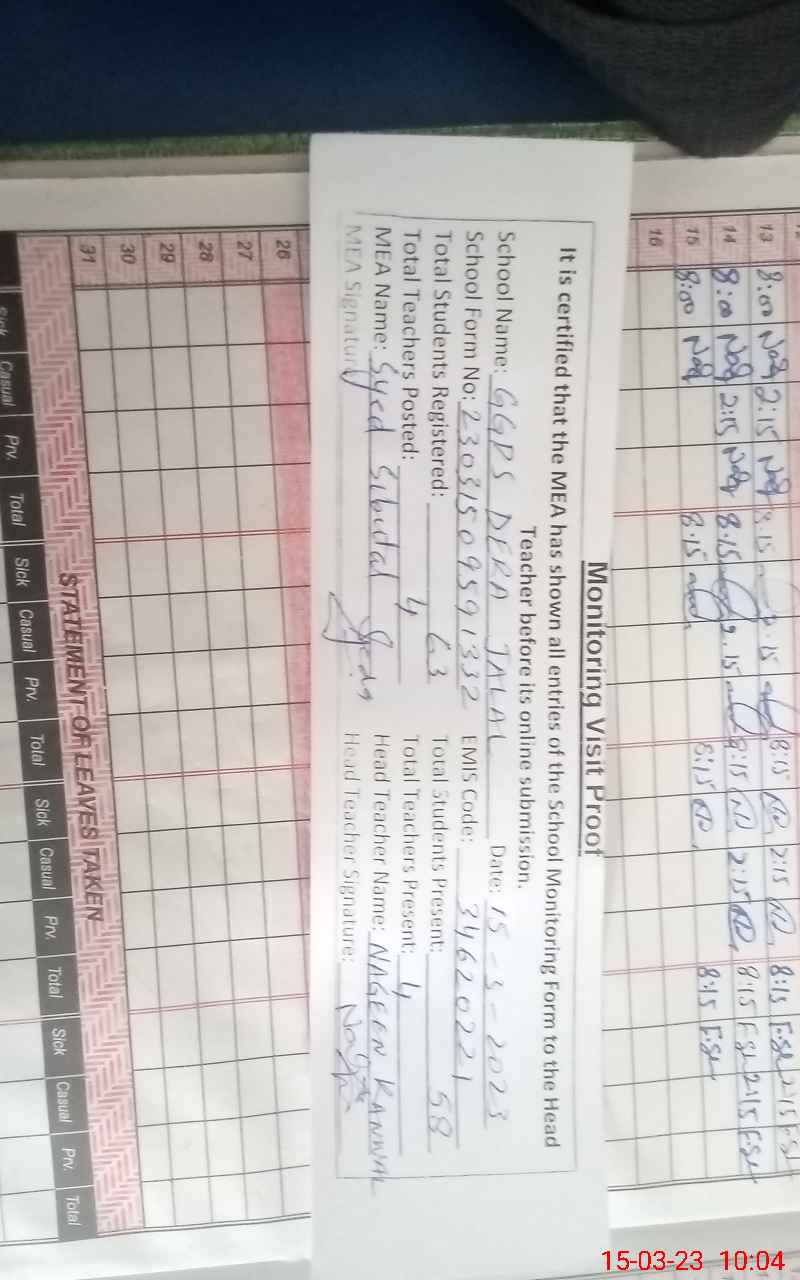 13 8:00 2:15 8:15 2:15 8:15 2:15 8:15 2:15
14 8:00 2:15 8:15 2:15 8:15 2:15 8:15 2:15
15 8:00 8:15 8:15 8:15
16
Monitoring Visit Proof
It is certified that the MEA has shown all entries of the School Monitoring Form to the Head
Teacher before its online submission.
School Name: GGPS DERA JALAL Date: 15-3-2023
School Form No: 23031509591332 EMIS Code: 34620221
Total Students Registered: 63 Total Students Present: 58
Total Teachers Posted: 4 Total Teachers Present: 4
MEA Name: Syed Head Teacher Name: NAGEEN KANWAL
MEA Signature Head Teacher Signature:
26
27
28
29
30
31
STATEMENT OF LEAVES TAKEN
Sick Casual Prv. Total Sick Casual Prv. Total Sick Casual Prv. Total Sick Casual Prv. Total
15-03-23 10:04